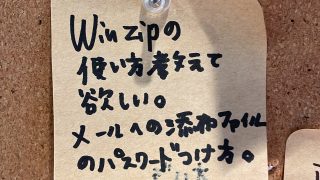 Win zipの
使い方教えて
欲しい。
メールへの添付ファイル
のパスワードつけ方。